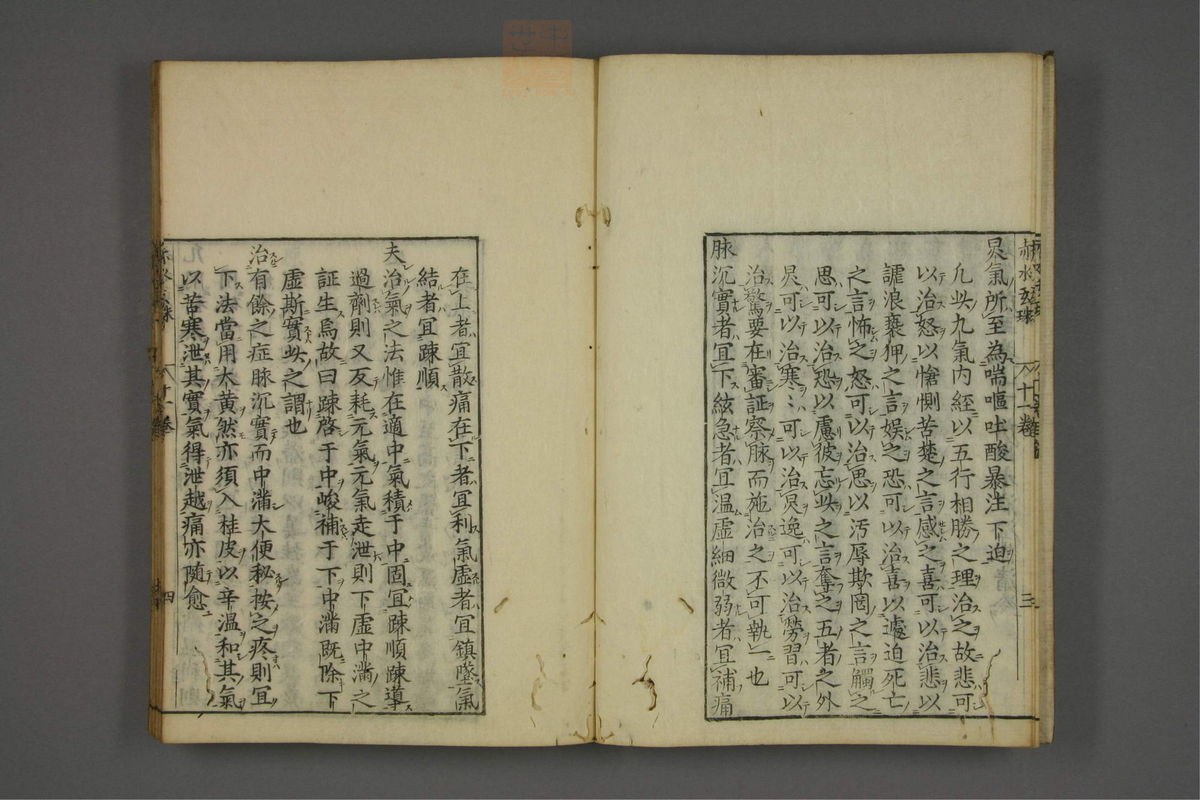 赤水玄珠 十一卷 三
炅氣所至為喘嘔吐酸暴注下迫
凢此九氣内經以五行相勝之理治之故悲可
以治怒以愴惻苦楚之言感之喜可以治悲以
謔浪褻狎之言娛之恐可以治喜以遽迫死亡
之言怖之怒可以治思以汚辱欺罔之言觸之
思可以治恐以慮彼忘此之言奪之五者之外
炅可以治寒〻可以治炅逸可以治勞習可以
治驚要在審証察脉而施治之不可執一也
脉沉實者宜下絃急者宜温虛細微弱者宜補痛
在上者宜散痛在下者宜利氣虛者宜鎮墜氣
結者宜踈順
夫治氣之法惟在適中氣積于中固宜踈順踈導
過劑則又反耗元氣元氣走泄則下虛中滿之
証生焉故曰踈啓于中峻補于下中滿既除下
虛斯實此之謂也
治有餘之症脉沉實而中滿大便秘按之疼則宜
下法當用大黄然亦須入桂皮以辛温和其氣
以苦寒泄其實氣得泄越痛亦随愈
十一卷 四